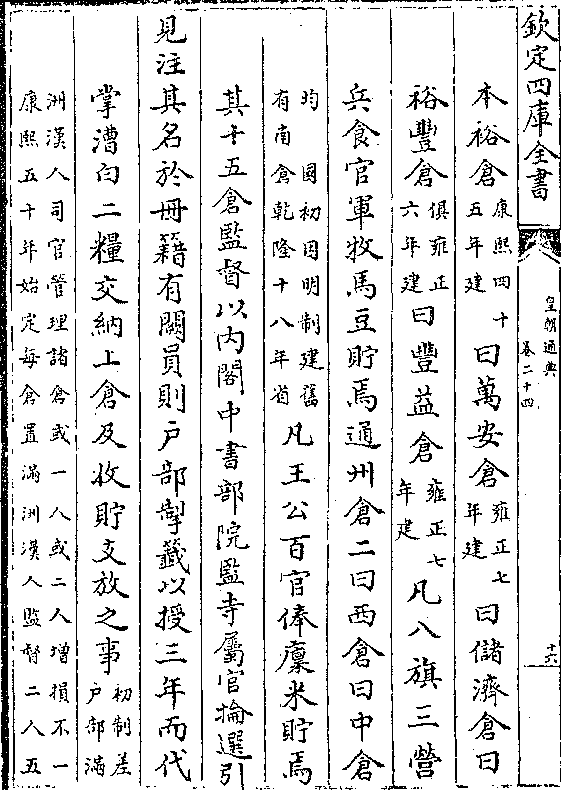 欽定四庫全書
皇朝通典
卷二十四
十六
本裕倉康熙四十五年建曰萬安倉雍正七年建曰儲濟倉曰
裕豐倉俱雍正六年建曰豐益倉雍正七年建凡八旗三營
兵食官軍牧馬豆貯焉通州倉二曰西倉曰中倉
均國初因明制建舊有南倉乾隆十八年省凡王公百官俸廩米貯焉
其十五倉監督以內閣中書部院監寺屬官掄選引
見注其名於冊籍有闕員則戶部掣籤以授三年而代
掌漕白二糧交納上倉及收貯支放之事初制差戶部滿
洲漢人司官管理諸倉或一人或二人增損不一
康熙五十年始定每倉置滿洲漢人監督二人五